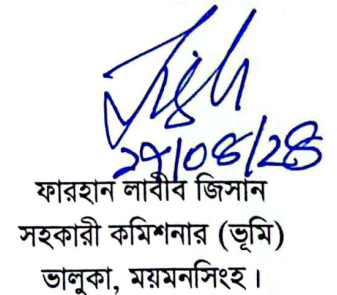 ফারহান লাবীব জিসান
সহকারী কমিশনার (ভূমি)
ভালুকা, ময়মনসিংহ।